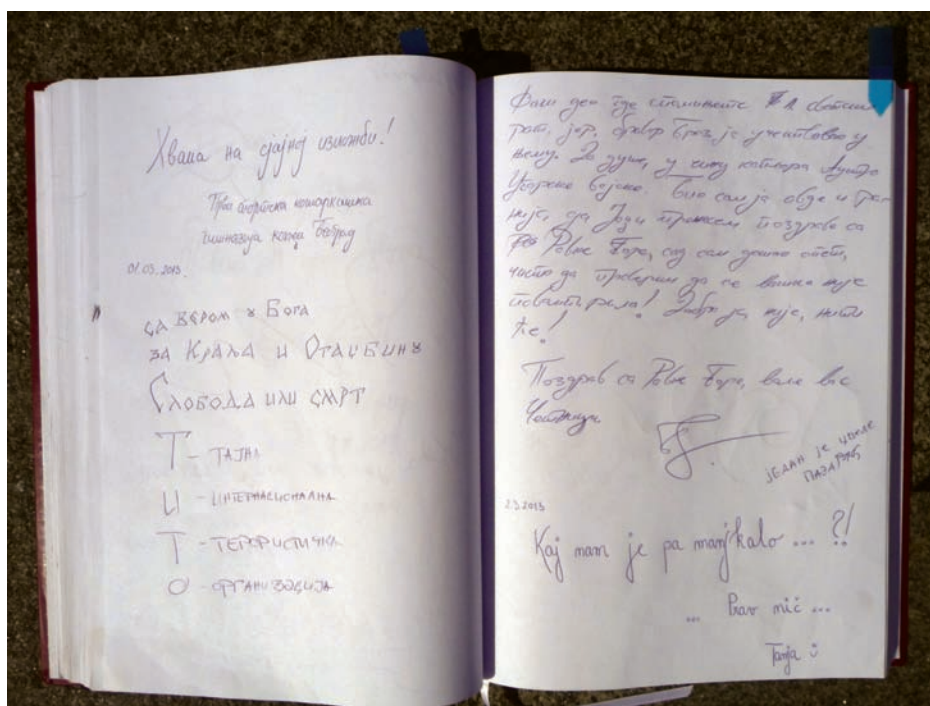 Хвала на сјајној изложби!
Прва спортска кошаркашка
гимназија Београд
01.03.2013.
СА ВЕРОМ У БОГА
ЗА КРАЉА И ОТАЏБИНУ
СЛОБОДА ИЛИ СМРТ
Т - ТАЈНА
И - ИНТЕРНАЦИОНАЛНА
Т - ТЕРОРИСТИЧКА
О - ОРГАНИЗАЦИЈА
део где спомињете I светски
рат, јер, Броз је учествовао у
њему. у чину Аустро
Угарске војске. Био сам ја овде и ра
није, да пренесем поздраве са
Равне Горе, сад сам дошао опет,
чисто да проверим да се није
повампирила! Добро је, није, нити
ће!
Поздрав са Равне Горе, воле вас
Четници.
ЈЕДАН ЈЕ
2.3.2013
Kaj nam je pa manjkalo ... ?!
... Prav nič ...
Tanja